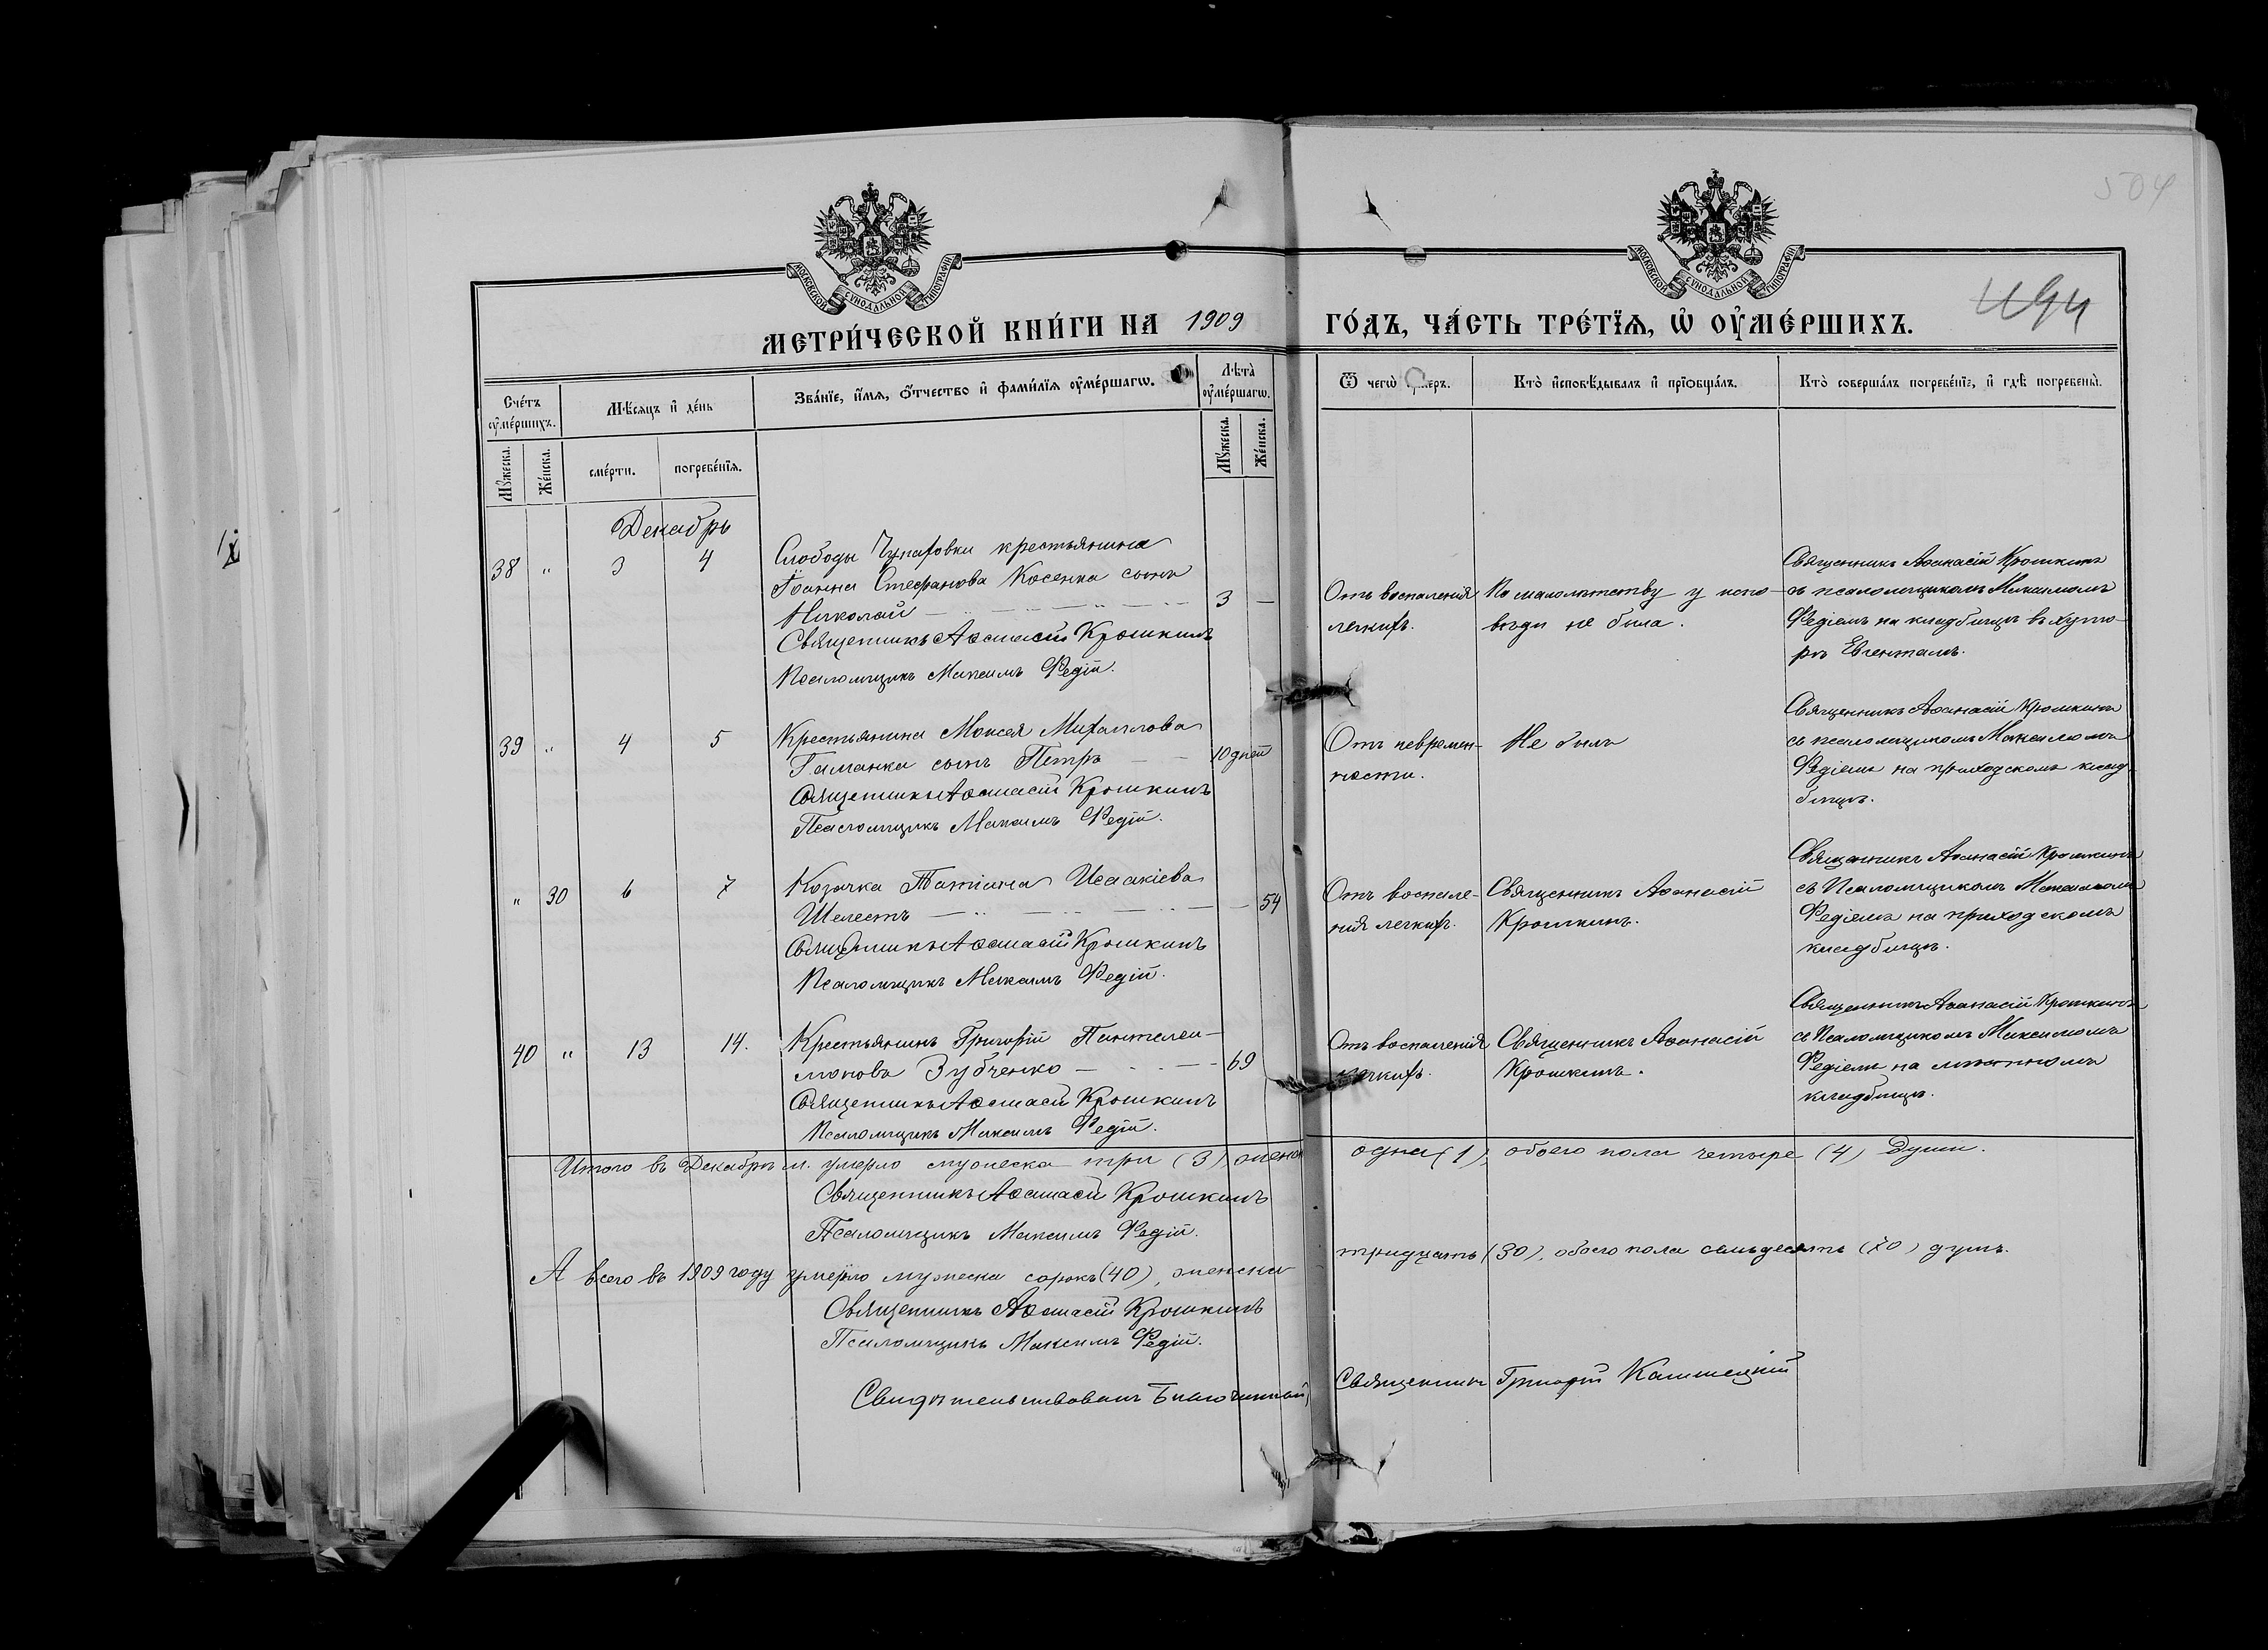 504
МОСКОВСКОЙ СУНОДАЛЬНОЙ ТИПОГРАФІИ
МОСКОВСКОЙ СУНОДАЛЬНОЙ ТИПОГРАФІИ
МЕТРИ́ЧЕСКОЙ КНИ́ГИ НА 1909 ГО́ДЪ, ЧА́СТЬ ТРЕ́ТЇѦ, Ѡ҆ ОУ҆МЕ́РШИХЪ.
Сче́тъ оу҆ме́ршихъ.
Мѣ́сѧцъ и҆ де́нь
Зва́нїе, и҆́мѧ, ѻ҆́тчество и҆ фами́лїѧ оу҆ме́ршагѡ.
Лѣ́та̀ оу҆ме́ршагѡ.
Ѿ чегѡ̀ оу҆́меръ.
Кто̀ и҆сповѣ́дывалъ и҆ прїѡбща́лъ.
Кто̀ соверша́лъ погребе́нїе, и҆ гдѣ̀ погребены̀.
Мꙋ́жеска.
Же́нска.
сме́рти.
погребе́нїѧ.
Мꙋ́жеска.
Же́нска.
Декабрь
38 " 3 4 Слободы Чупаховки крестьянина
Іоанна Стефанова Косенка сынъ
Николай 3 —
Священникъ Аѳанасій Крошкинъ
Псаломщикъ Максимъ Ѳедій.
Отъ воспаленія
легкихъ.
По малолѣтству у испо-
вѣди не была.
Священникъ Аѳанасій Крошкинъ
съ псаломщикомъ Максимомъ
Ѳедіемъ на кладбищѣ в хуто-
рѣ
39 " 4 5 Крестьянина Моисея Михаилова
Гаманка сынъ Петръ 10 дней
Священникъ Аѳанасій Крошкинъ
Псаломщикъ Максимъ Ѳедій.
Отъ неврѣмен-
ности.
Не былъ
Священникъ Аѳанасій Крошкинъ
съ псаломщикомъ Максимомъ
Ѳедіемъ на приходскомъ клад-
бищѣ.
" 30 6 7 Козачка Татіана Исаакіева
Шелестъ 54
Священникъ Аѳанасій Крошкинъ
Псаломщикъ Максимъ Ѳедій.
Отъ воспале-
нія легкихъ.
Священникъ Аѳанасій
Крошкинъ.
Священникъ Аѳанасій Крошкинъ
съ Псаломщикомъ Максимомъ
Ѳедіемъ на приходскомъ
кладбищѣ.
40 " 13 14. Крестьянинъ Григорій Пантелеи-
моновъ Зубченко 69
Священникъ Аѳанасій Крошкинъ
Псаломщикъ Максимъ Ѳедій.
Отъ воспаленія
легкихъ.
Священникъ Аѳанасій
Крошкинъ.
Священникъ Аѳанасій Крошкинъ
съ Псаломщикомъ Максимомъ
Ѳедіемъ на мѣстномъ
кладбищѣ.
Итого въ Декабрѣ м. умерло мужеска три (3) женск одна (1), обоего пола четыре (4) души.
Священникъ Аѳанасій Крошкинъ
Псаломщикъ Максимъ Ѳедій.
А всего въ 1909 году умерло мужеска сорокъ (40), женска тридцать (30), обоего пола семьдесятъ (70) душъ.
Священникъ Аѳанасій Крошкинъ
Псаломщикъ Максимъ Ѳедій.
Свидѣтельствовалъ Благочинный, Священникъ Григорій